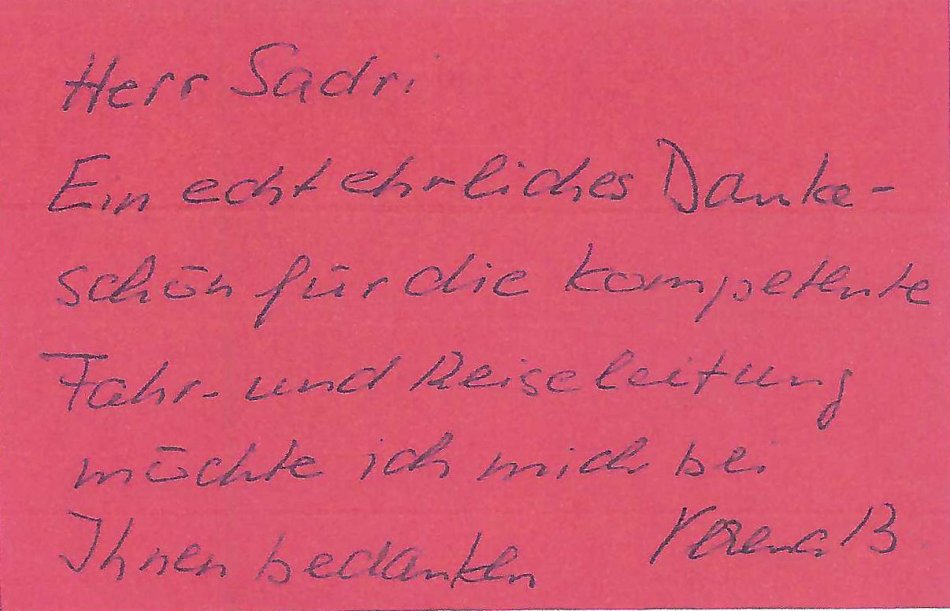 Herr Sadri
Ein echt ehrliches Danke-
schön für die kompetente
Fahr- und Reiseleitung
möchte ich mich bei
Ihnen bedanken Verena B